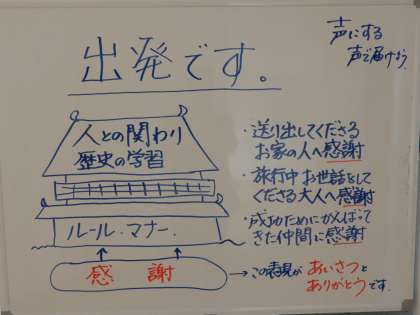 声にする
声で届けよう
出発です。
人との関わり
歴史の学習
ルール・マナー.
感 謝
・送り出してくださる
お家の人へ感謝
・旅行中お世話をして
くださる大人へ感謝
・成功のためにがんばって
きた仲間に感謝
→この表現があいさつと
ありがとうです.